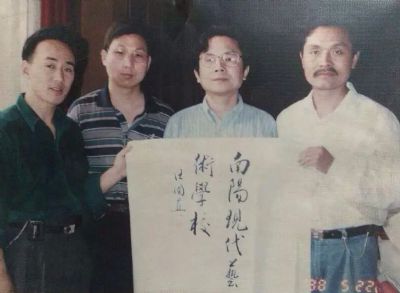 向陽現代藝
術學校
98 5.22